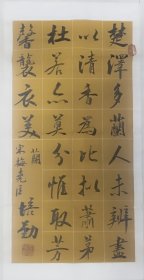 楚澤多蘭人未辨盡
以清香為比拟蕭茅
杜若亦莫分惟取芳
馨襲衣美
蘭
宋梅堯臣
培勤